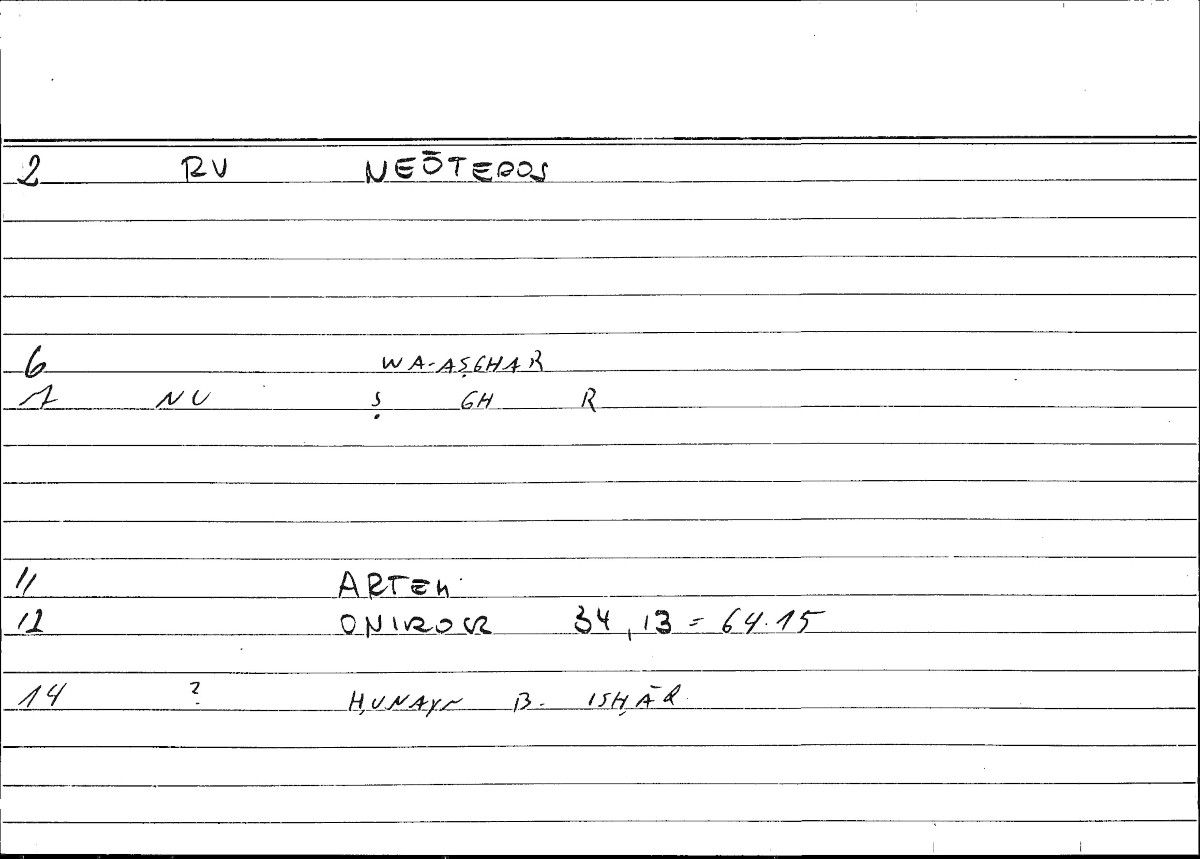 2 RV NEŌTEROS
6 WA-AṢGHAR
1 NU Ṣ GH R
11 ARTEM
12 ONIROCR 34,13 = 64.15
14 ? ḤUNAYN B. ISḤĀQ